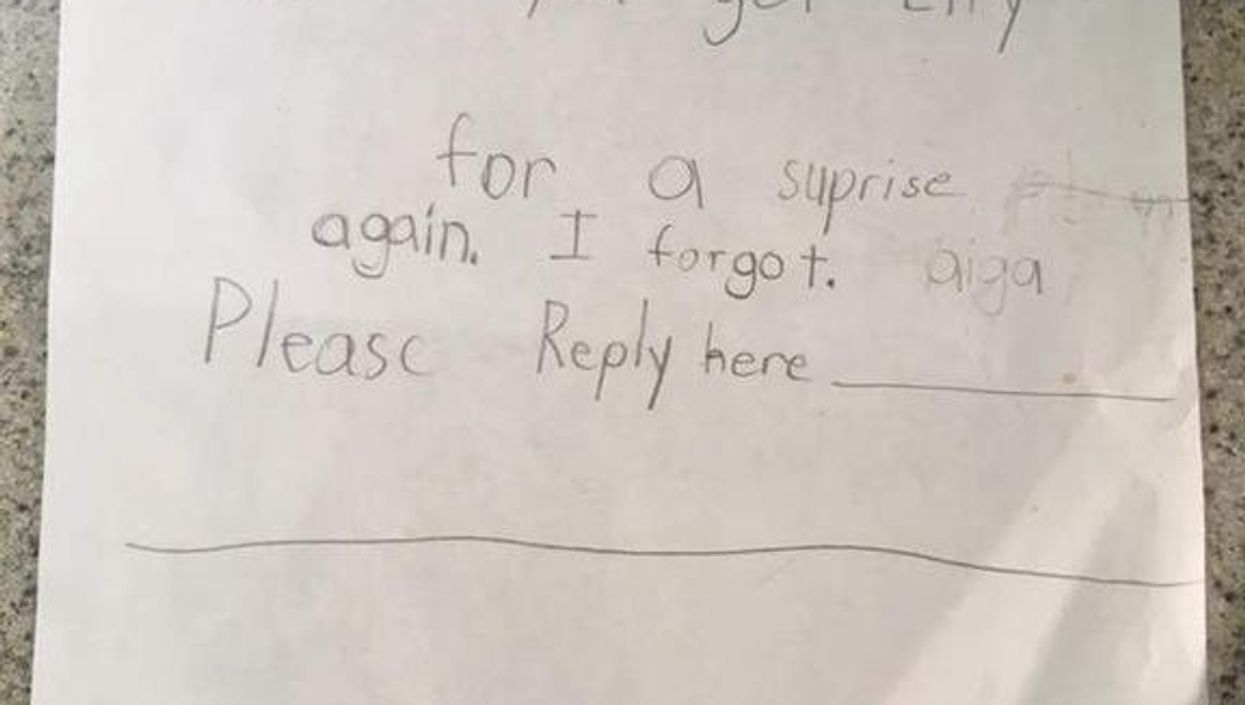 get
for a suprise
again. I forgot. aiga
Please Reply here